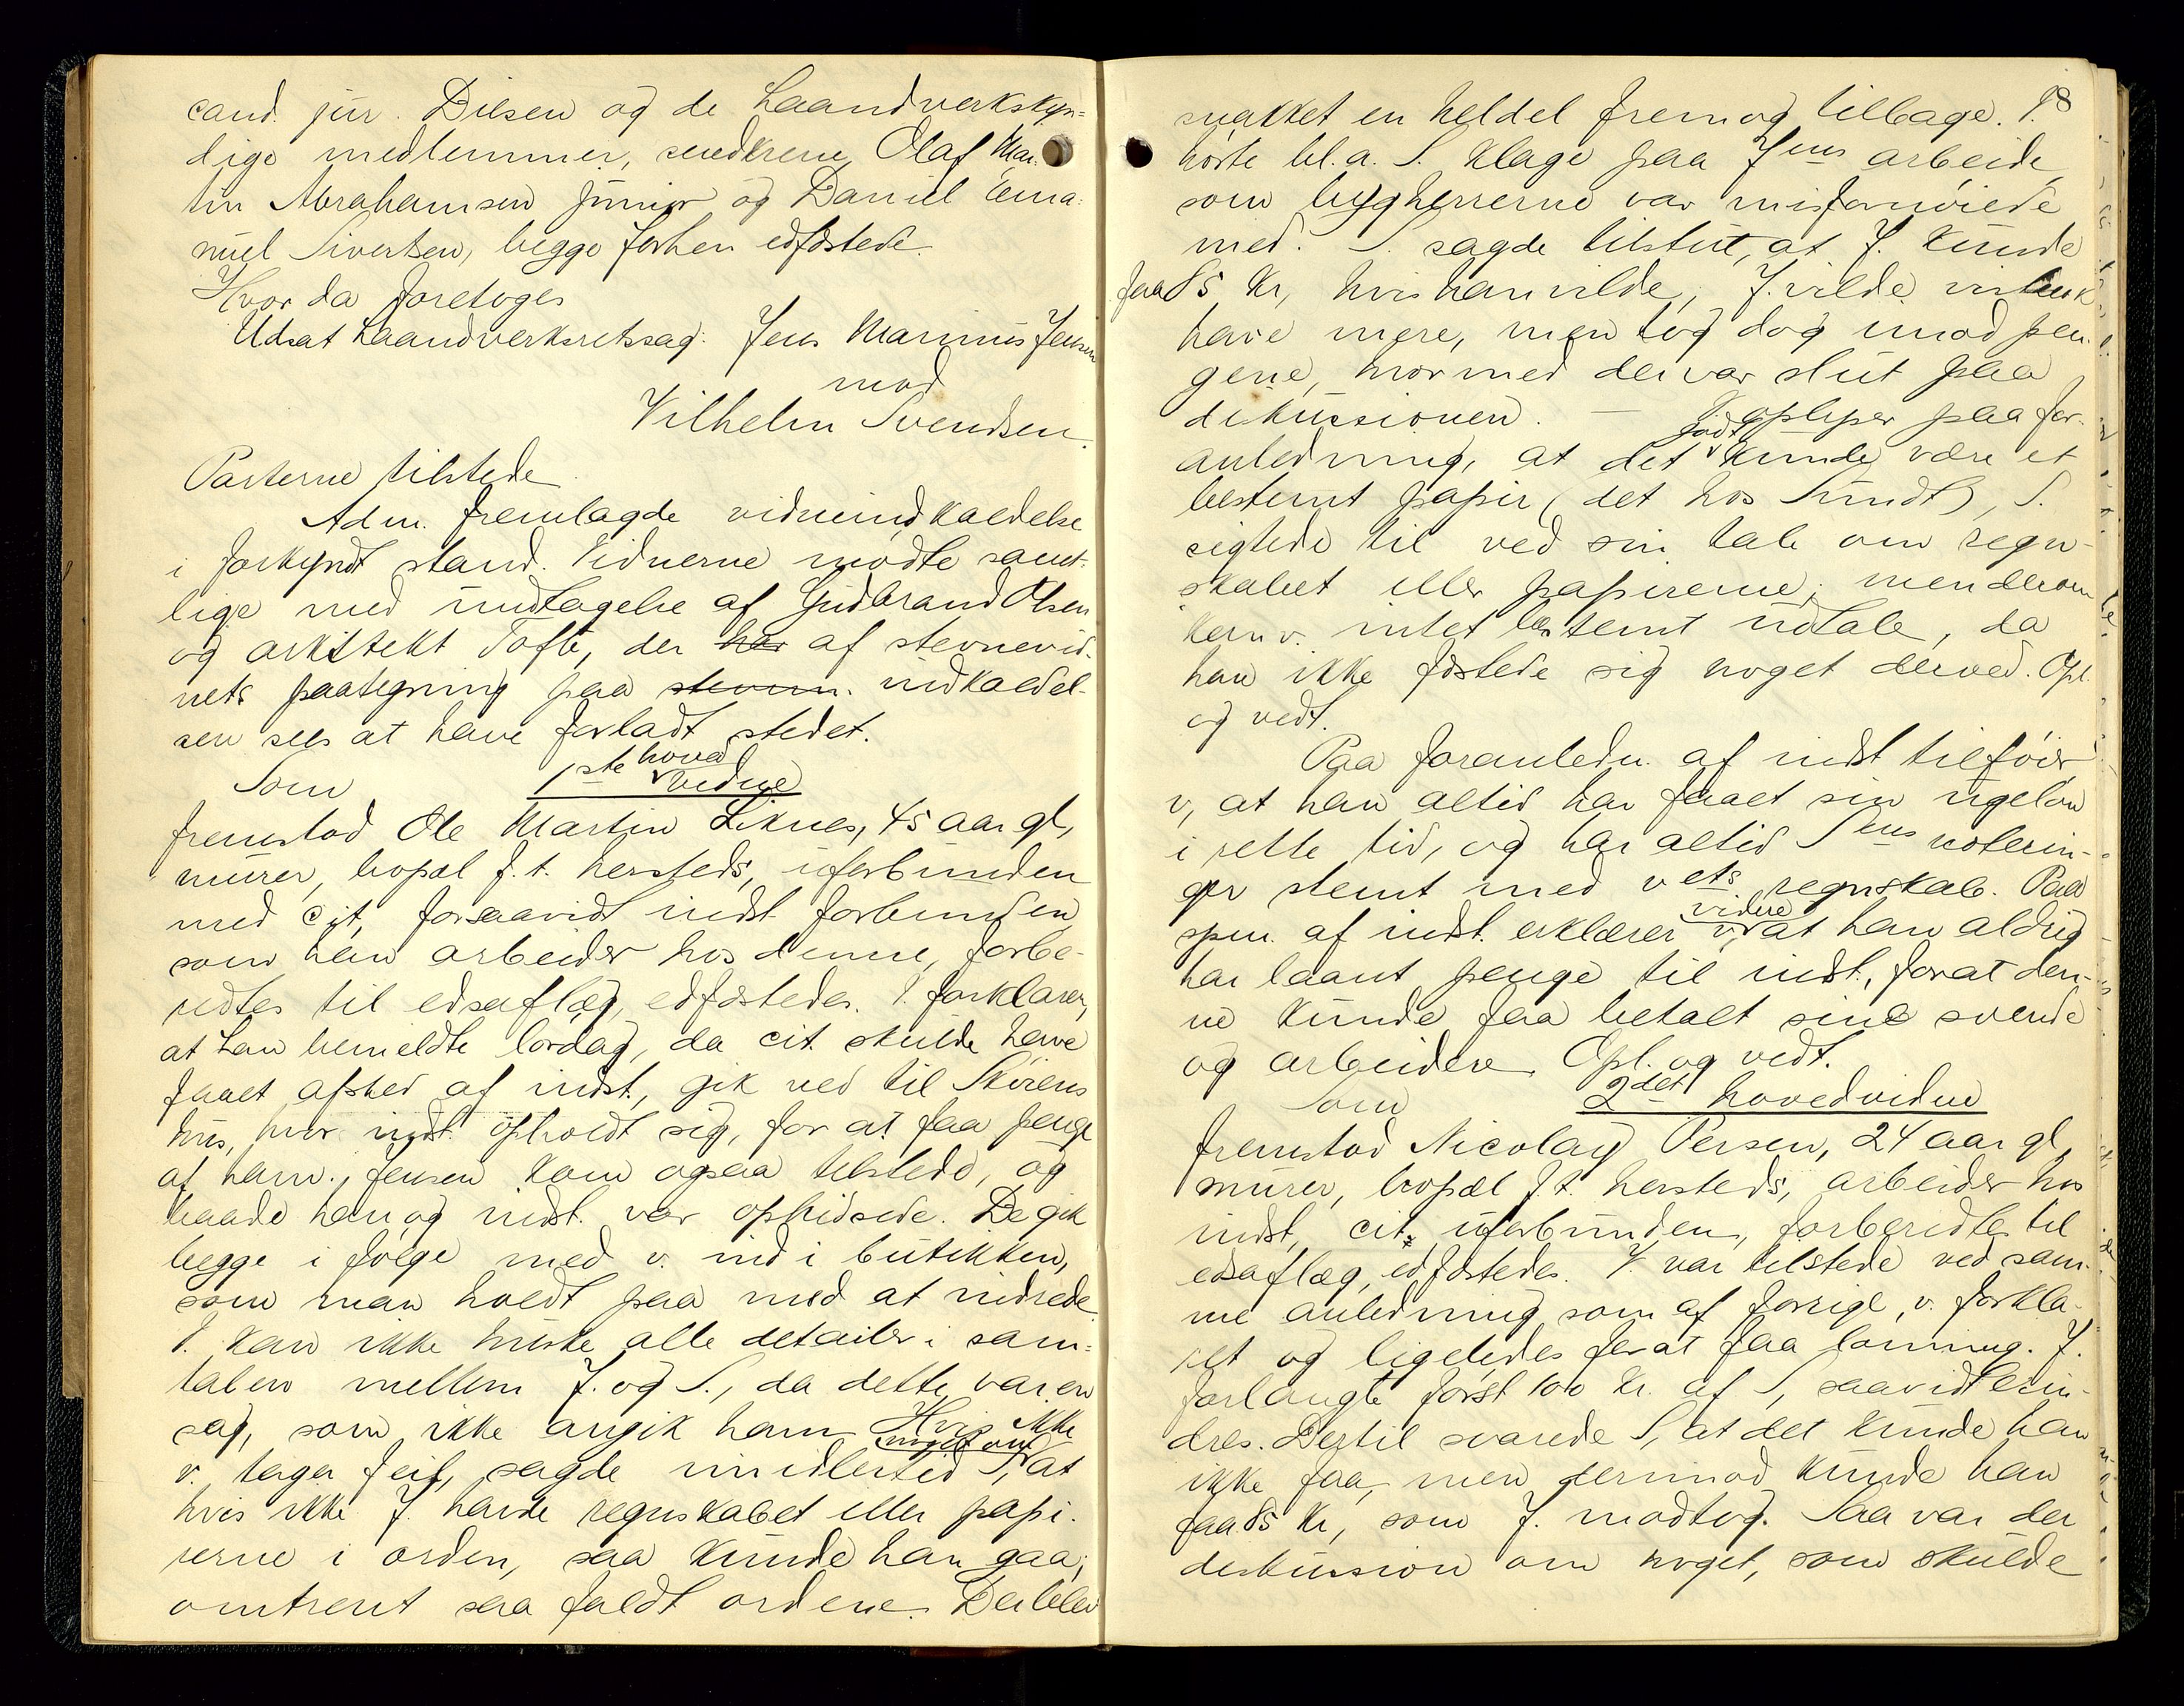 cand. jur. Diesen og de haandverkskyn=
dige medlemmer, snedkerne Olaf Mar=
tin Abrahamsen junior og Daniel Ema=
nuel Sivertsen, begge forhen edfæstede.
Hvor da foretoges
Udsat haandverksretssag: Jens Marinus Jensen
mod
Vilhelm Svendsen.
Parterne tilstede
Adm. fremlagde vidneindkaldelse
i forkyndt stand. Vidnerne mødte samt-
lige med undtagelse af Gudbrand Olsen
og arkitekt Tofte, der har af stevnevid-
nets paategning paa stevnn. indkaldel-
sen sees at have forladt stedet.
Som 1ste hovedvidne
fremstod Ole Martin Liknes, 45 aar gl,
murer, bopæl f. t. hersteds, uforbunden
med cit, forsaavidt indst. forbunden
som han arbeider hos denne, forbe-
redtes til edsaflæg, edfæstedes. V. forklarer,
at han bemeldte lørdag, da cit. skulde have
faaet afsked af indst., gik ned til Skirens
hus, hvor indst. opholdt sig, for at faa penge
af ham. Jensen kom ogsaa tilstede, og
baade han og indst. var ophidsede. De gik
begge i følge med v. ind i butikken,
som man holdt paa med at indrede.
V. kan ikke huske alle detailer i sam=
talen mellem J. og S., da dette var en
sag, som ikke angik ham. Hvis ikke
v. tager feil, sagde imidlertid S. noget om at
hvis ikke J. havde regnskabet eller papi-
rerne i orden, saa kunde han gaa;
omtrent saa faldt ordene. Der blev
18
snakket en heldel frem og tilbage. V.
hørte bl.a. S. klage paa Jens arbeide,
som bygherrerne var misfornøiede
med. S. sagde tilslut, at J. kunde
faa 85 kr, hvis han vilde, J. vilde
have mere, men tog dog imod pen-
gene, hvormed der var slut paa
diskussionen. — V. oplyser paa for-
anledning, at det godt kunde være et
bestemt papir (det hos Sundt), S.
sigtede til ved sin tale om regn-
skabet eller papirerne; men derom
kan v. intet bestemt udtale, da
han ikke fæstede sig noget derved. Opl.
og vedt.
Paa foranledn. af indst tilføier
v, at han altid har faaet sin ugeløn
i rette tid, og har altid Sens noterin-
ger stemt med vets regnskab. Paa
spm. af indst. erklærer v. videre at han aldrig
har laant penge til indst., forat den-
ne kunde faa betalt sine svende
og arbeidere. Opl. og vedt.
Som 2det hovedvidne
fremstod Nicolay Persen, 24 aar gl,
murer, bopæl f. t. hersteds, arbeider hos
indst, cit. uforbunden, forberedtes til
edsaflæg, edfæstedes. V. var tilstede ved sam-
me anledning, som af forrige v. forkla-
ret og ligeledes forat faa lønning. J.
forlangte først 100 kr. af S, saavidt erin-
dres. Dertil svarede S, at det kunde han
ikke faa, men derimod kunde han
faa 85 kr, som J. modtog. Saa var der
diskussion om noget, som skulde